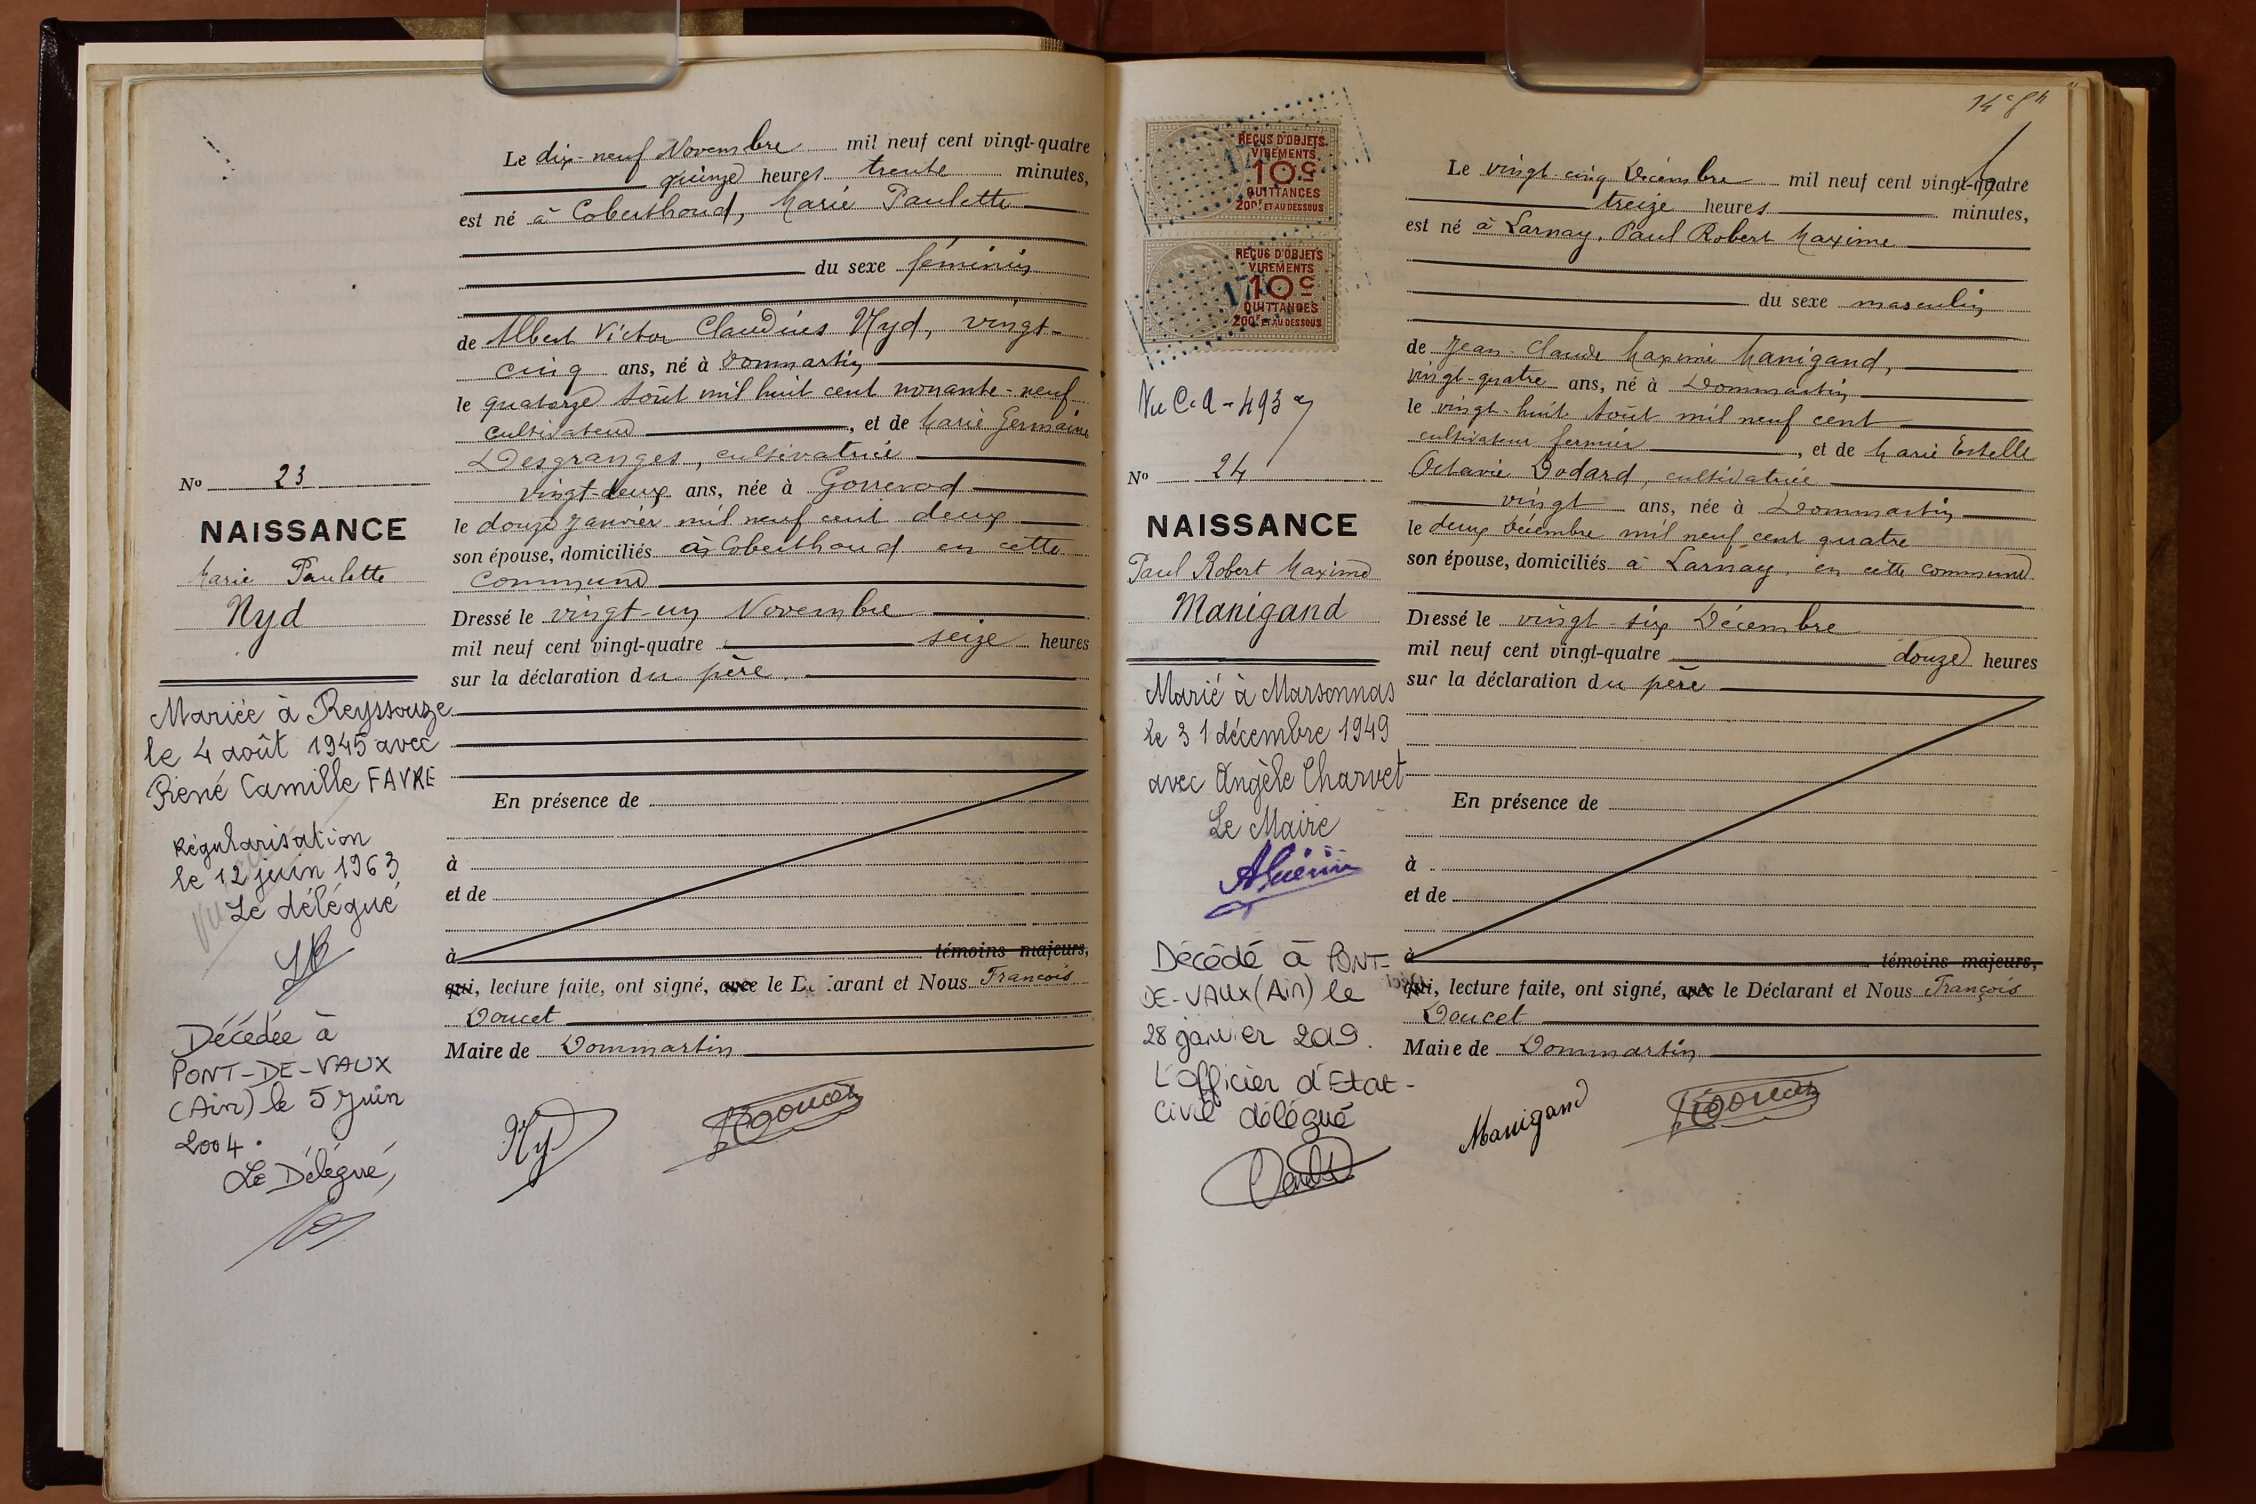 Le dix-neuf Novembre mil neuf cent vingt-quatre
quinze heures trente minutes,
est né à Coberthoud, Marie Paulette
du sexe féminin
de Albert Victor Claudius Nyd, vingt-
cinq ans, né à Dommartin
le quatorze Août mil huit cent nonante-neuf
cultivateur, et de Marie Germaine
Desgranges, cultivatrice
vingt-deux ans, née à Gorrevod
le douze Janvier mil neuf cent deux
son épouse, domiciliés à Coberthoud en cette
commune
Dressé le vingt-un Novembre
mil neuf cent vingt-quatre seize heures
sur la déclaration du père.
En présence de
à
et de
à témoins majeurs,
qui, lecture faite, ont signé, avec le Déclarant et Nous François
Doucet
Maire de Dommartin
Nyd
FDoucet
No 23
NAISSANCE
Marie Paulette
Nyd
Mariée à Reyssouze
le 4 août 1945 avec
René Camille FAVRE
Régularisation
le 12 juin 1963
Le délégué
Décédée à
PONT-DE-VAUX
(Ain) le 5 Juin
2004.
Le Délégué,
14e fh
REÇUS D'OBJETS
VIREMENTS
10c
QUITTANCES
200F ET AU DESSOUS
REÇUS D'OBJETS
VIREMENTS
10c
QUITTANCES
200F ET AU DESSOUS
Vu C.A - 493
No 24
NAISSANCE
Paul Robert Maxime
Manigand
Marié à Marsonnas
le 31 décembre 1949
avec Angèle Charvet
Le Maire
AGuérin
Décédé à PONT-
DE-VAUX (Ain) le
28 janvier 2019.
L'officier d'Etat-
civil délégué
Le vingt-cinq Décembre mil neuf cent vingt-quatre
treize heures minutes,
est né à Larnay, Paul Robert Maxime
du sexe masculin
de Jean-Claude Maxime Manigand,
vingt-quatre ans, né à Dommartin
le vingt-huit Août mil neuf cent
cultivateur fermier, et de Marie Estelle
Octavie Dodard, cultivatrice
vingt ans, née à Dommartin
le deux Décembre mil neuf cent quatre
son épouse, domiciliés à Larnay, en cette commune
Dressé le vingt-six Décembre
mil neuf cent vingt-quatre douze heures
sur la déclaration du père
En présence de
à
et de
à témoins majeurs,
qui, lecture faite, ont signé, avec le Déclarant et Nous François
Doucet
Maire de Dommartin
Manigand
FDoucet